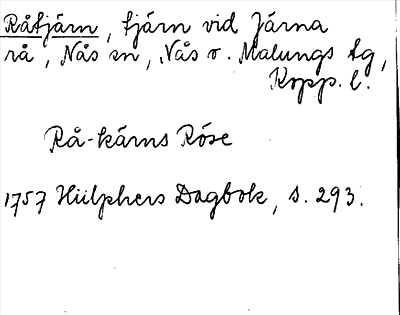 Råtjärn, tjärn vid Järna
rå, Nås sn, Nås o. Malungs tg,
Kopp. l.
Rå-kärns Röse
1757 Hülphers Dagbok, s. 293.